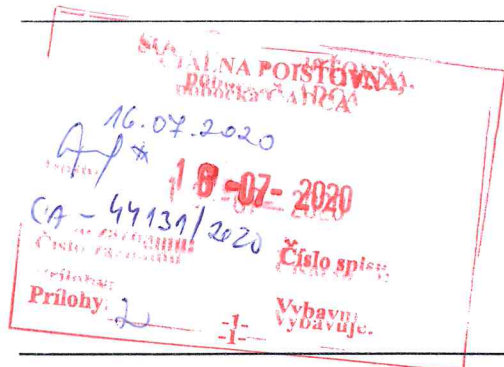 SOCIÁLNA POISŤOVŇA,
pobočka ČADCA
16.07.2020
16 -07- 2020
CA - 44131/2020
Číslo záznamu Číslo spisu:
Prílohy: 2 Vybavuje:
-1-